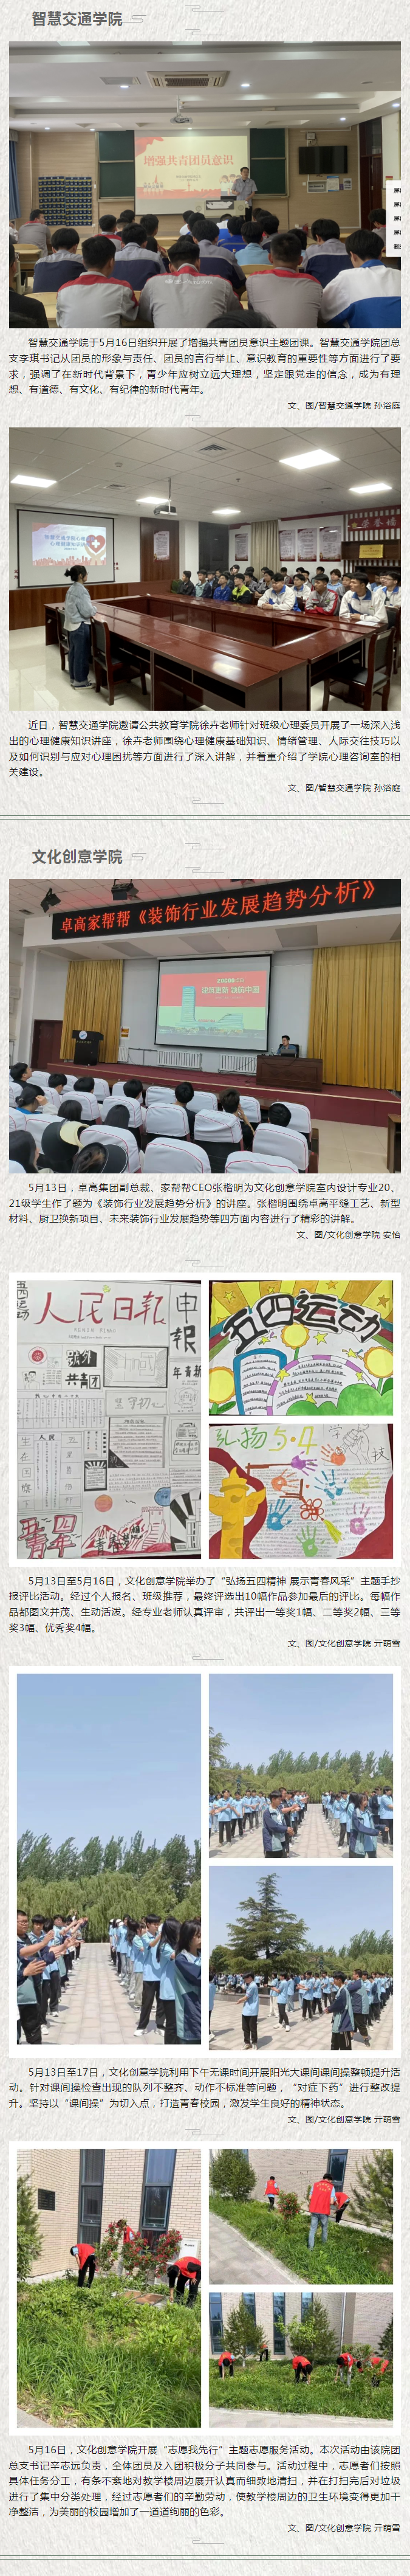 智慧交通学院
增强共青团员意识
智慧交通学院于5月16日组织开展了增强共青团员意识主题团课。智慧交通学院团总
支李琪书记从团员的形象与责任、团员的言行举止、意识教育的重要性等方面进行了要
求，强调了在新时代背景下，青少年应树立远大理想，坚定跟党走的信念，成为有理
想、有道德、有文化、有纪律的新时代青年。
文、图/智慧交通学院 孙浴庭
近日，智慧交通学院邀请公共教育学院徐卉老师针对班级心理委员开展了一场深入浅
出的心理健康知识讲座，徐卉老师围绕心理健康基础知识、情绪管理、人际交往技巧以
及如何识别与应对心理困扰等方面进行了深入讲解，并着重介绍了学院心理咨询室的相
关建设。
文、图/智慧交通学院 孙浴庭
文化创意学院
卓高家帮帮《装饰行业发展趋势分析》
5月13日，卓高集团副总裁、家帮帮CEO张楷明为文化创意学院室内设计专业20、
21级学生作了题为《装饰行业发展趋势分析》的讲座。张楷明围绕卓高平缝工艺、新型
材料、厨卫换新项目、未来装饰行业发展趋势等四方面内容进行了精彩的讲解。
文、图/文化创意学院 安怡
五四运动
人民日报
共青团
五四
青年
五四运动
弘扬5·4
5月13日至5月16日，文化创意学院举办了“弘扬五四精神 展示青春风采”主题手抄
报评比活动。经过个人报名、班级推荐，最终评选出10幅作品参加最后的评比。每幅作
品都图文并茂、生动活泼。经专业老师认真评审，共评出一等奖1幅、二等奖2幅、三等
奖3幅、优秀奖4幅。
文、图/文化创意学院 亓萌雪
5月13日至17日，文化创意学院利用下午无课时间开展阳光大课间课间操整顿提升活
动。针对课间操检查出现的队列不整齐、动作不标准等问题，“对症下药”进行整改提
升。坚持以“课间操”为切入点，打造青春校园，激发学生良好的精神状态。
文、图/文化创意学院 亓萌雪
5月16日，文化创意学院开展“志愿我先行”主题志愿服务活动。本次活动由该院团
总支书记辛志远负责，全体团员及入团积极分子共同参与。活动过程中，志愿者们按照
具体任务分工，有条不紊地对教学楼周边展开认真而细致地清扫，并在打扫完后对垃圾
进行了集中分类处理，经过志愿者们的辛勤劳动，使教学楼周边的卫生环境变得更加干
净整洁，为美丽的校园增加了一道道绚丽的色彩。
文、图/文化创意学院 亓萌雪